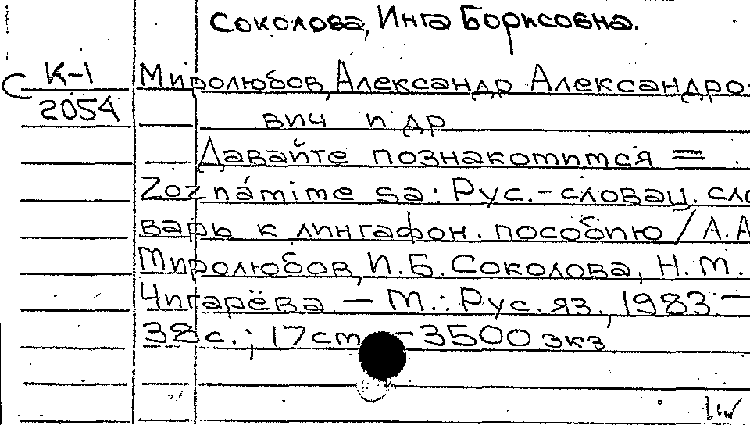 Соколова, Инга Борисовна.
С К-1 Миролюбов, Александр Александро-
2054 вич и др
Давайте познакомимся =
Zoznámime sa: Рус.-словац. сло
варь к лингафон. пособию / А.А
Миролюбов, И.Б. Соколова, Н.М.
Чигарёва — М.: Рус. яз., 1983.—
38 с.; 17 см — 3500 экз